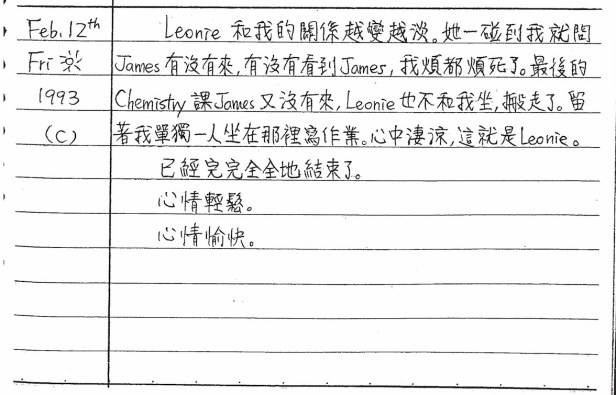 Feb. 12th Leonie 和我的關係越變越淡。她一碰到我就問
Fri James 有沒有來,有沒有看到James, 我煩都煩死了。最後的
1993 Chemistry 課James 又沒有來, Leonie 也不和我坐,搬走了。留
(C) 著我單獨一人坐在那裡寫作業。心中淒涼,這就是Leonie。
已經完完全全地結束了。
心情輕鬆。
心情愉快。